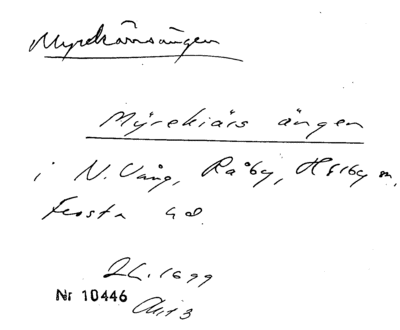 Myrekärrsängen
Myrekiärs ängen
i N. Vång, Råby, Hälby sn,
Frosta hd.
LL. 1699
Nr 10446
Akt 3